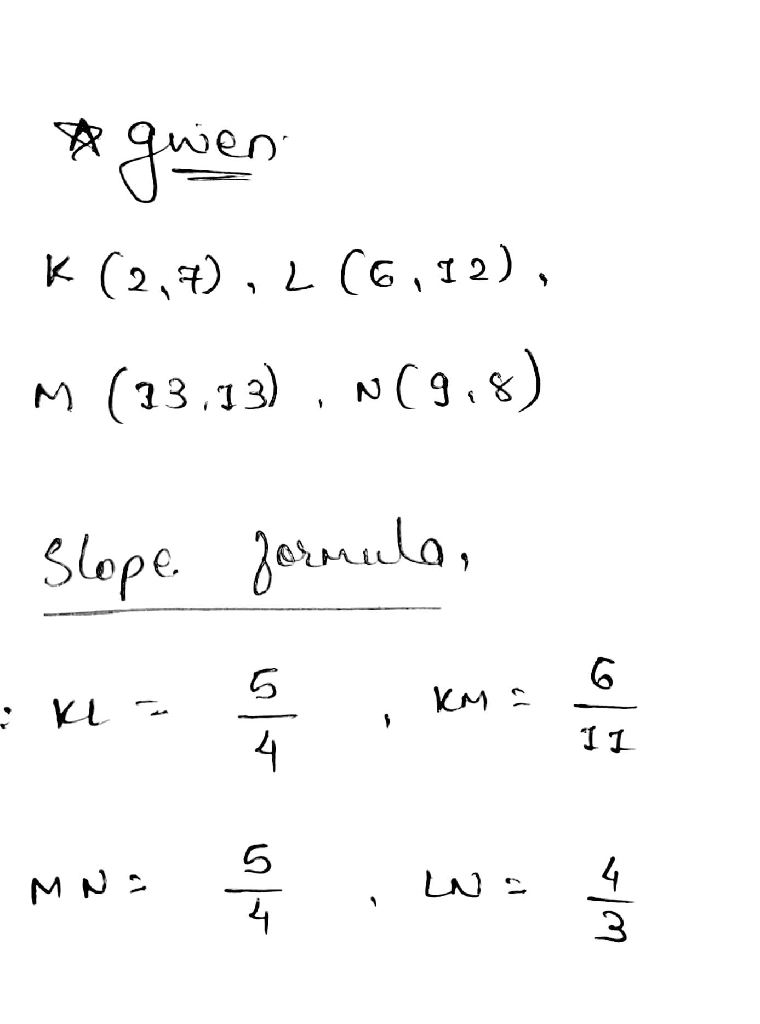 ☆ given
K (2,7), L (6,12),
M (13,13), N(9,8)
Slope formula,
: KL = 5/4, KM = 6/11
MN = 5/4, LN = 4/3